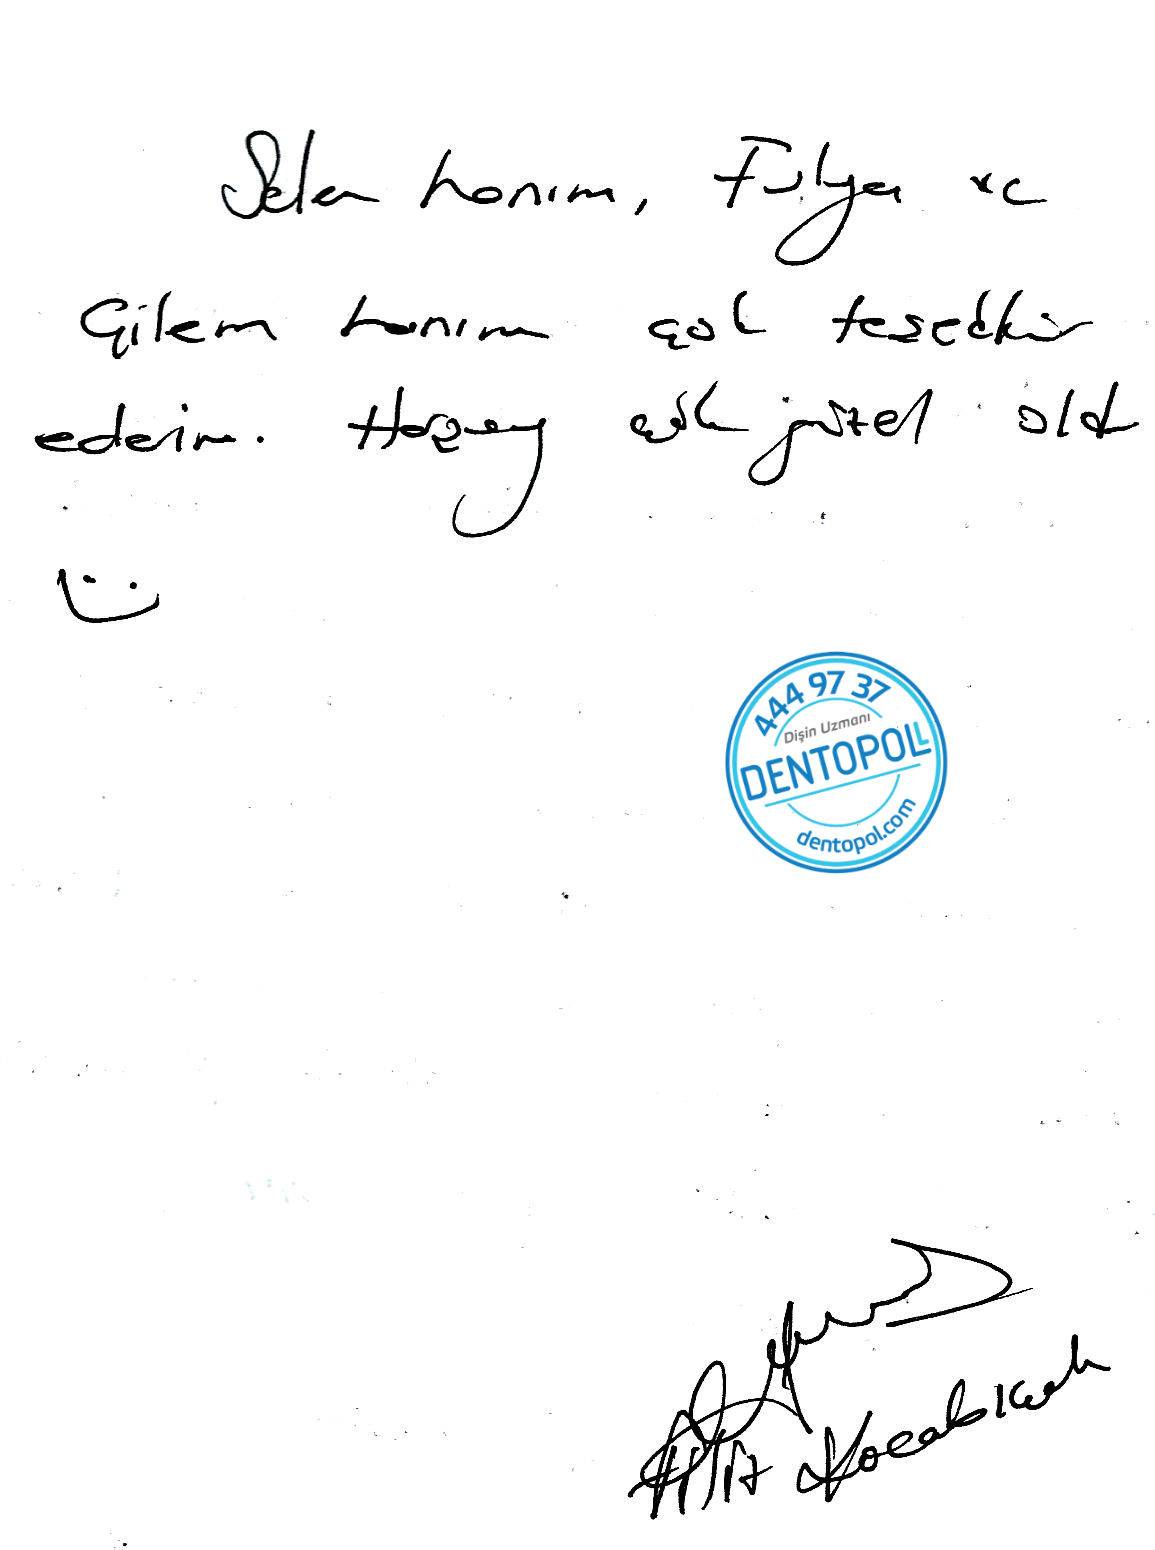 Selen hanım, Fulya ve
Çilem hanım çok teşekkür
ederim. Herşey çok güzel oldu
444 97 37
Dişin Uzmanı
DENTOPOLL
dentopol.com
Kocabıçak